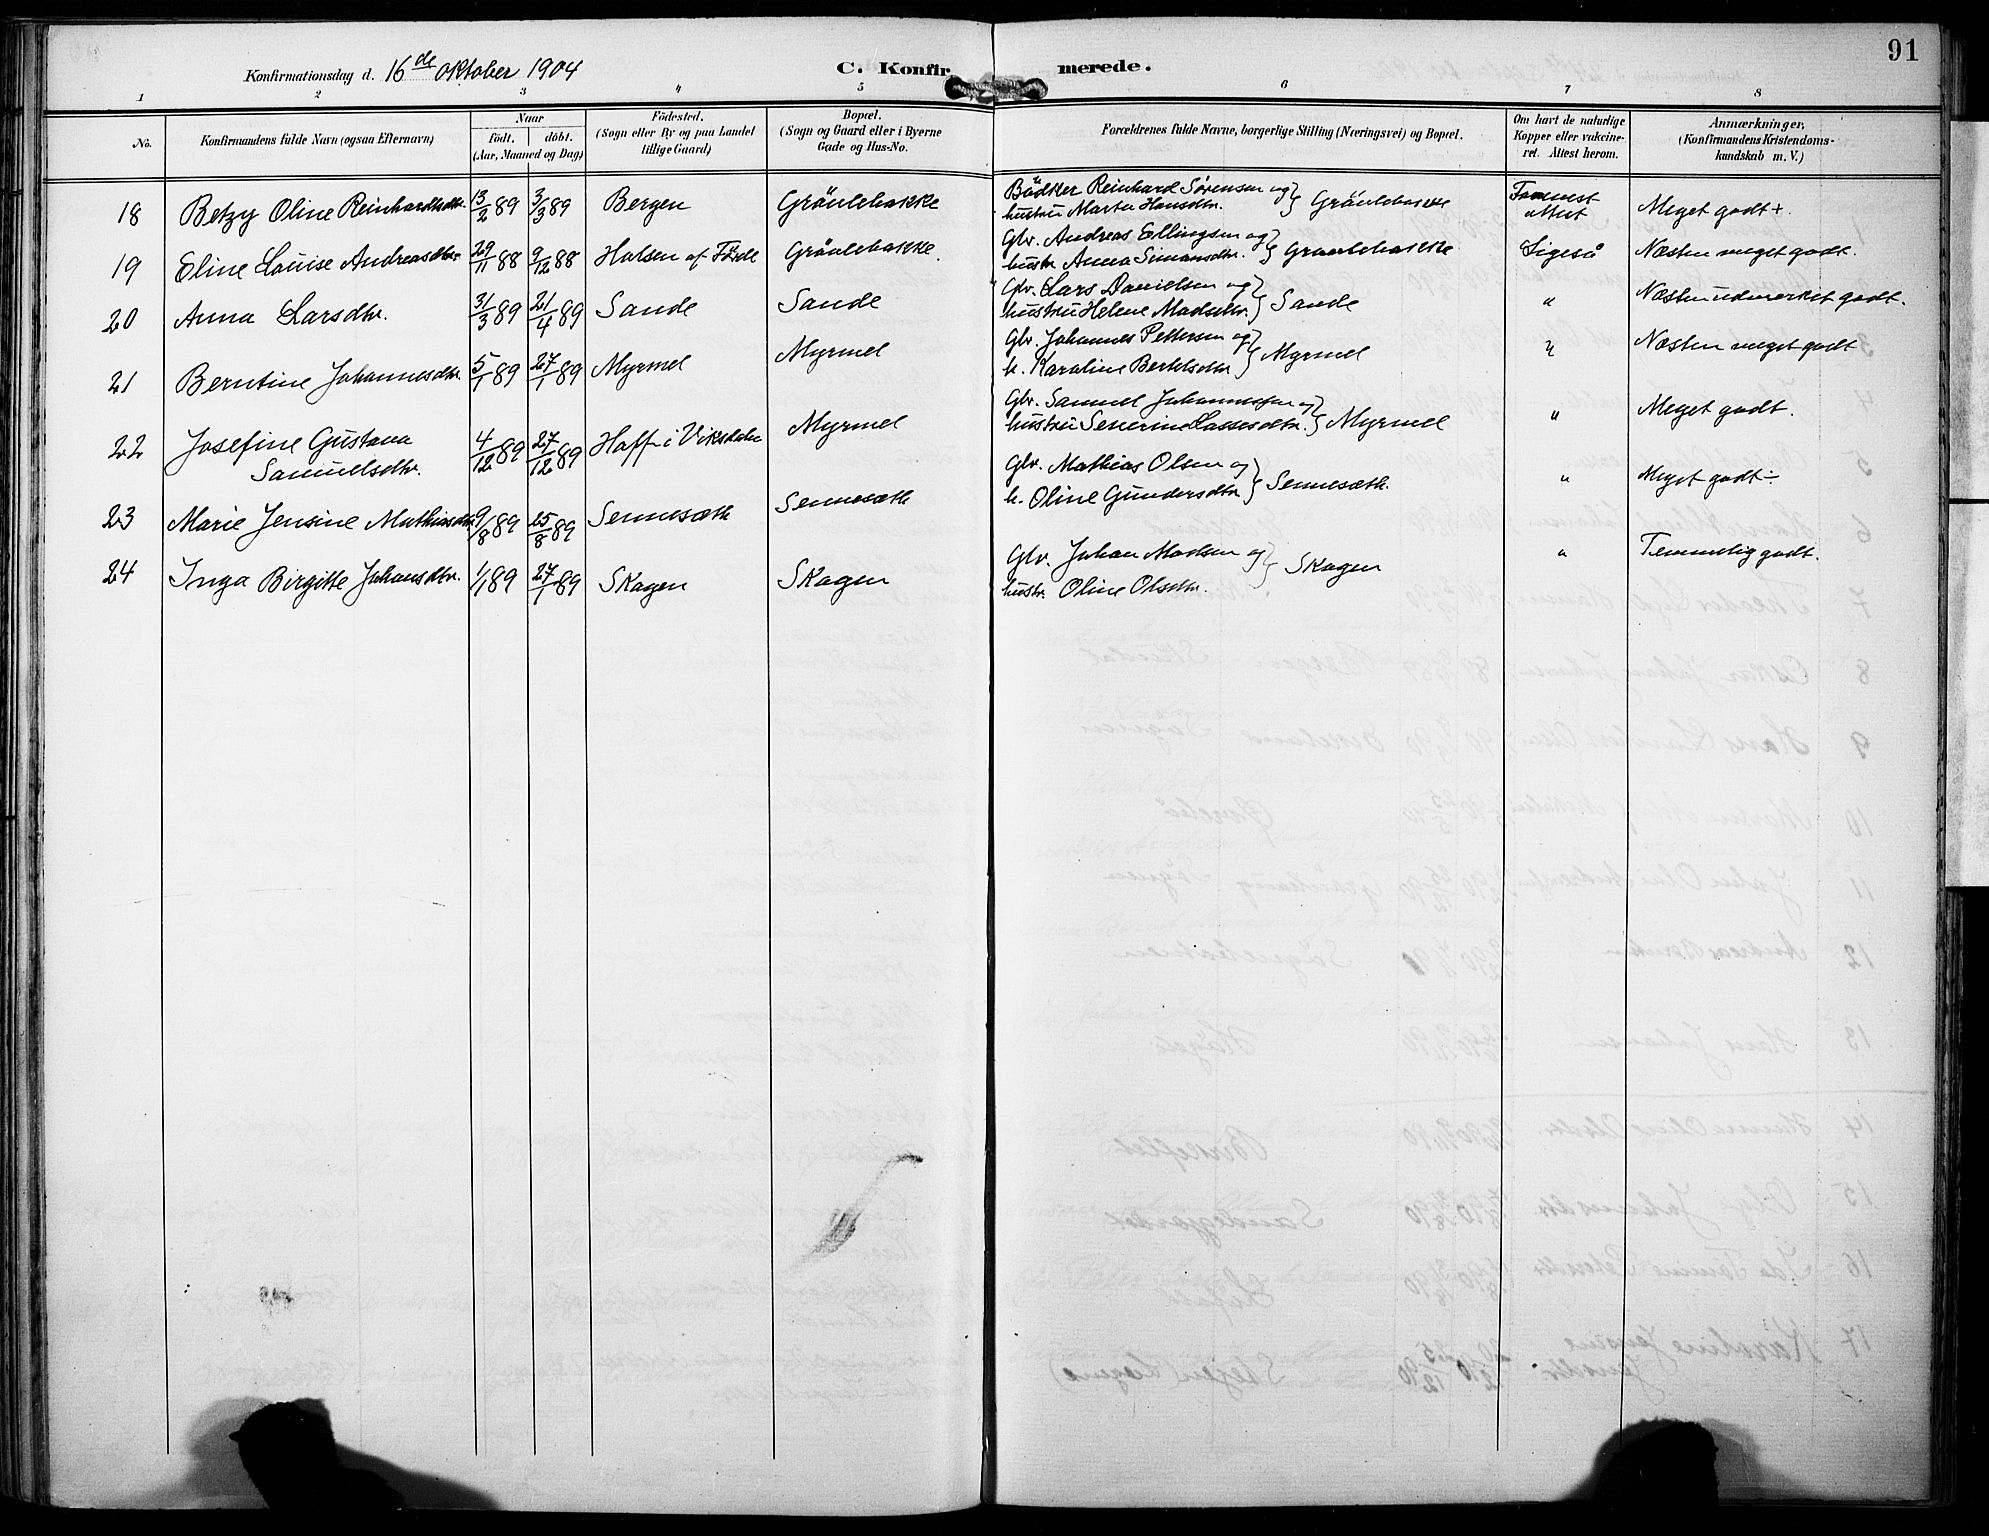 91
Konfirmationsdag d. 16de Oktober 1904
C. Konfirmerede.
1 2 3 4 5 6 7 8
No.
Konfirmandens fulde Navn (ogsaa Efternavn)
Naar
födt. döbt.
(Aar, Maaned og Dag)
Födested.
(Sogn eller By og paa Landet
tillige Gaard)
Bopæl.
(Sogn og Gaard eller i Byerne
Gade og Hus-No.
Forældrenes fulde Navne, borgerlige Stilling (Næringsvei) og Bopæl.
Om havt de naturlige
Kopper eller vakcine-
ret. Attest herom.
Anmærkninger,
(Konfirmandens Kristendoms-
kundskab m. V.)
18 Betzy Oline Reinhardtsdtr. 13/2 89 3/3 89 Bergen Grönlebakke Bödker Reinhard Sørensen og
hustru Marta Hansdtr. } Grönlebakke attest Meget godt +.
19 Eline Louise Andreasdtr. 29/11 88 9/12 88 Halsen af Förde Grönlebakke. Gbr. Andreas Ellingsen og
hustr. Anna Simonsdtr. } Grønlebakke Ligeså Næsten meget godt.
20 Anna Larsdtr. 31/3 89 21/4 89 Sande Sande Gbr. Lars Danielsen og
hustru Helene Madsdtr. } Sande " Næsten udmerket godt.
21 Berntine Johannesdtr. 5/1 89 27/1 89 Myrmel Myrmel Gbr. Johannes Pettersen og
h. Karoline Bertelsdtr } Myrmel " Næsten meget godt
22 Josefine Gustava
Samuelsdtr. 4/12 89 27/12 89 Hoff i Viksdalen Myrmel Gbr. Samuel Johannessen og
hustru Severine Lassesdtr. } Myrmel " Meget godt.
23 Marie Jensine Mathiasdtr 9/8 89 25/8 89 Sennesæth Sennesæth Gbr. Mathias Olsen og
h. Oline Gundersdtr } Sennesæth. " Meget godt ÷
24 Inga Birgitte Johansdtr. 1/1 89 27/1 89 Skagen Skagen Gbr. Johan Madsen og
hustr. Oline Olsdtr. } Skagen " Temmelig godt.